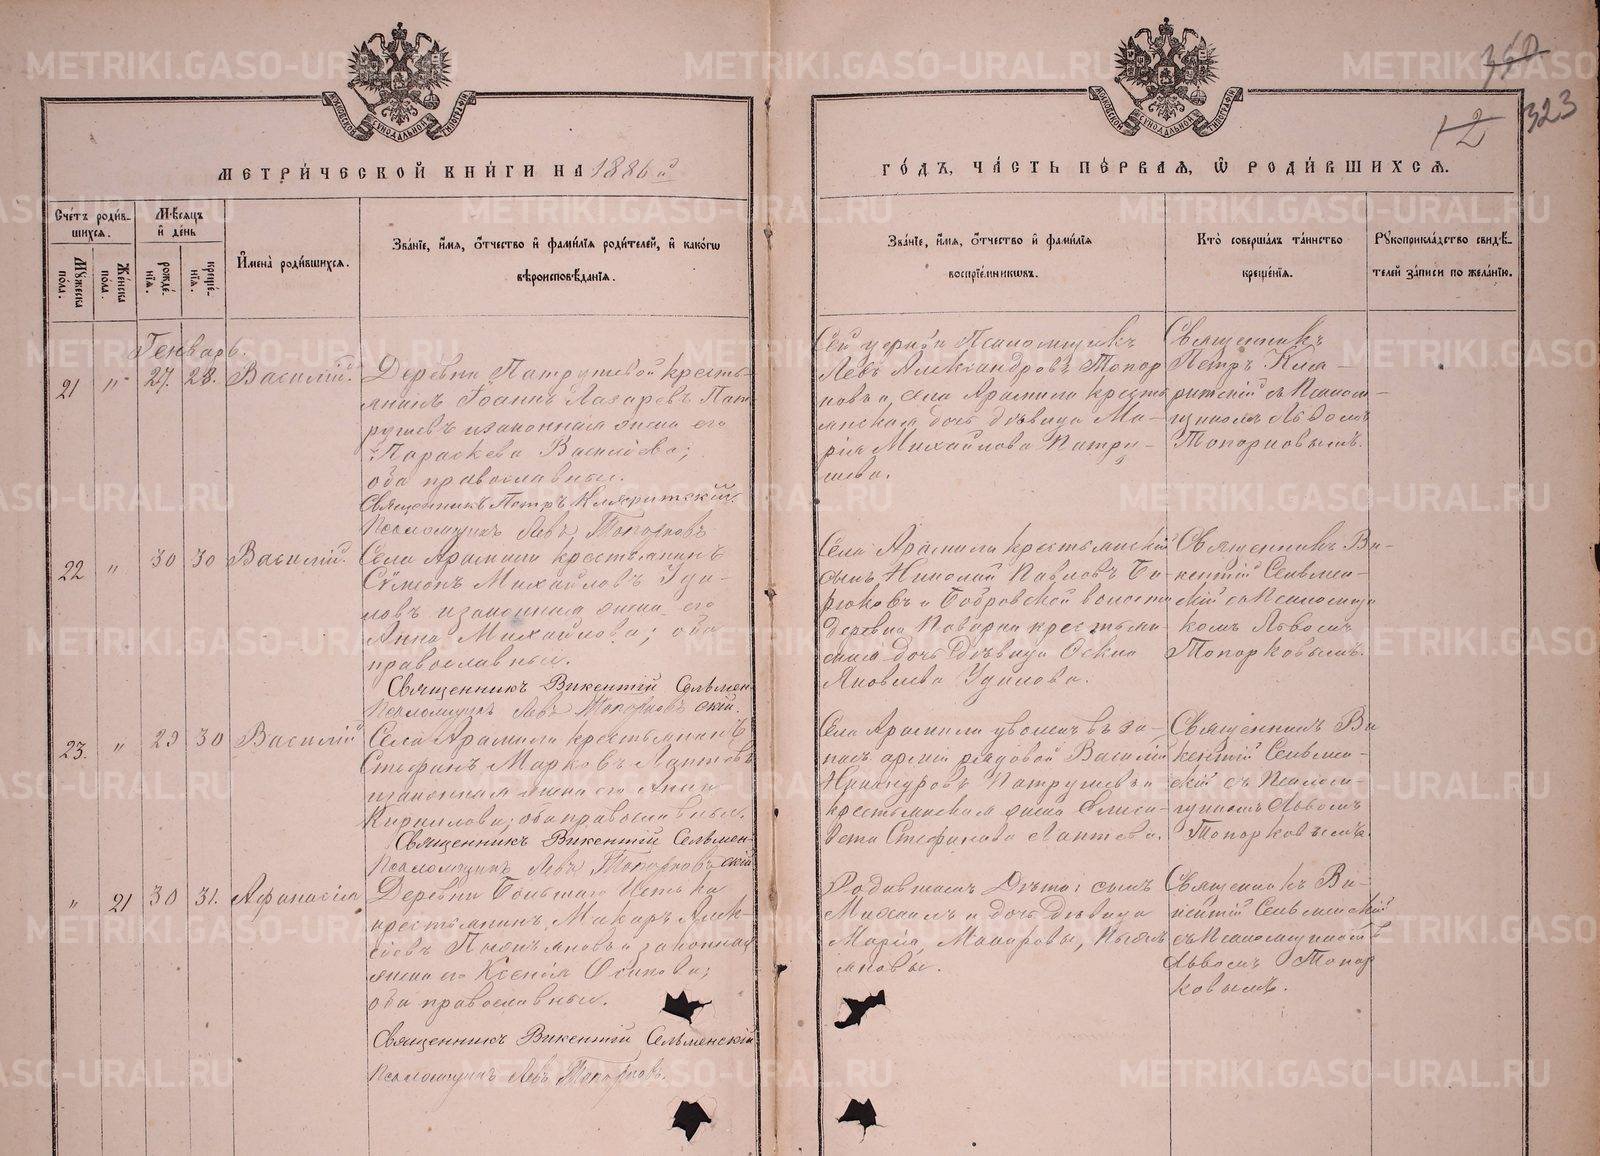 METRIKI.GASO-URAL.RU
360
12
323
МЕТРИ́ЧЕСКОЙ КНИ́ГИ НА 1886 й
ГО́ДЪ, ЧА́СТЬ ПЕ́РВАЯ, Ѿ РОДИ́ВШИХСЯ.
Сче́тъ роди́в-
шихся.
Му́жеска пола.
Же́нска пола.
Мѣсяцъ и́ день
рожде́нія.
креще́нія.
И҆мена̀ роди́вшихся.
Зва́ніе, и҆мя, о҆тчество и҆ фами́лія роди́телей, и҆ како́гѡ
вѣроисповѣ́данія.
Зва́ніе, и҆мя, о҆тчество и҆ фами́лія
воспріе́мникѡвъ.
Кто̀ соверша́лъ та́инство
креще́нія.
Рꙋкоприкла́дство свидѣ́-
телей за́писи по жела́нію.
Генварь.
21 " 27. 28. Василій.
Деревни Патрушевой кресть-
янинъ Іоаннъ Лазаревъ Пат-
рушевъ и законная жена его
Параскева Васильева;
оба православные.
Священникъ Петръ Кляритскій.
Псаломщикъ Левъ Топорковъ
Сей церкви Псаломщикъ
Левъ Александровъ Топор
ковъ и села Арамили кресть
янская дочь дѣвица Ма-
рія Михайлова Патру-
шева.
Священникъ
Петръ Кля-
ритскій съ Псалом-
щикомъ Львомъ
Топорковымъ.
22 " 30 30 Василій.
Села Арамили крестьянинъ
Сѵмеонъ Михайловъ Уди-
ловъ и законная жена его
Анна Михайлова; оба
православные.
Священникъ Викентій Сельмен
скій.
Псаломщикъ Левъ Топорковъ
Села Арамили крестьянскій
сынъ Николай Павловъ Би-
рюковъ и Бобровской волости
деревни Поварни крестьян-
ская дочь дѣвица
Яковлева Удилова.
Священникъ Ви-
кентій Сельмен-
скій съ Псаломщи
комъ Львомъ
Топорковымъ.
23. " 29 30 Василій
Села Арамили крестьянинъ
Стефанъ Марковъ Лаптевъ
и законная жена его Анна
Кириллова; оба православные.
Священникъ Викентій Сельмен-
скій
Псаломщикъ Левъ Топорковъ
Села Арамили уволен. въ за-
пасъ арміи рядовой Василій
Никануровъ Патрушевъ и
крестьянская жена Елиса-
вета Стефанова Лаптева.
Священникъ Ви
кентій Сельмен-
скій съ Псалом-
щикомъ Львомъ
Топорковымъ.
" 21 30 31. Афанасія
Деревни Большаго Истока
крестьянинъ Макаръ Алек-
сіевъ и законная
жена его Ксенія Осипова;
оба православные.
Священникъ Викентій Сельменскій
Псаломщикъ Левъ Топорковъ.
Родившаго дѣти: сынъ
Михаилъ и дочь дѣвица
Марія, Макаровы,
Священникъ Ви-
кентій Сельменскій
съ Псаломщикомъ
Львомъ Топор
ковымъ.